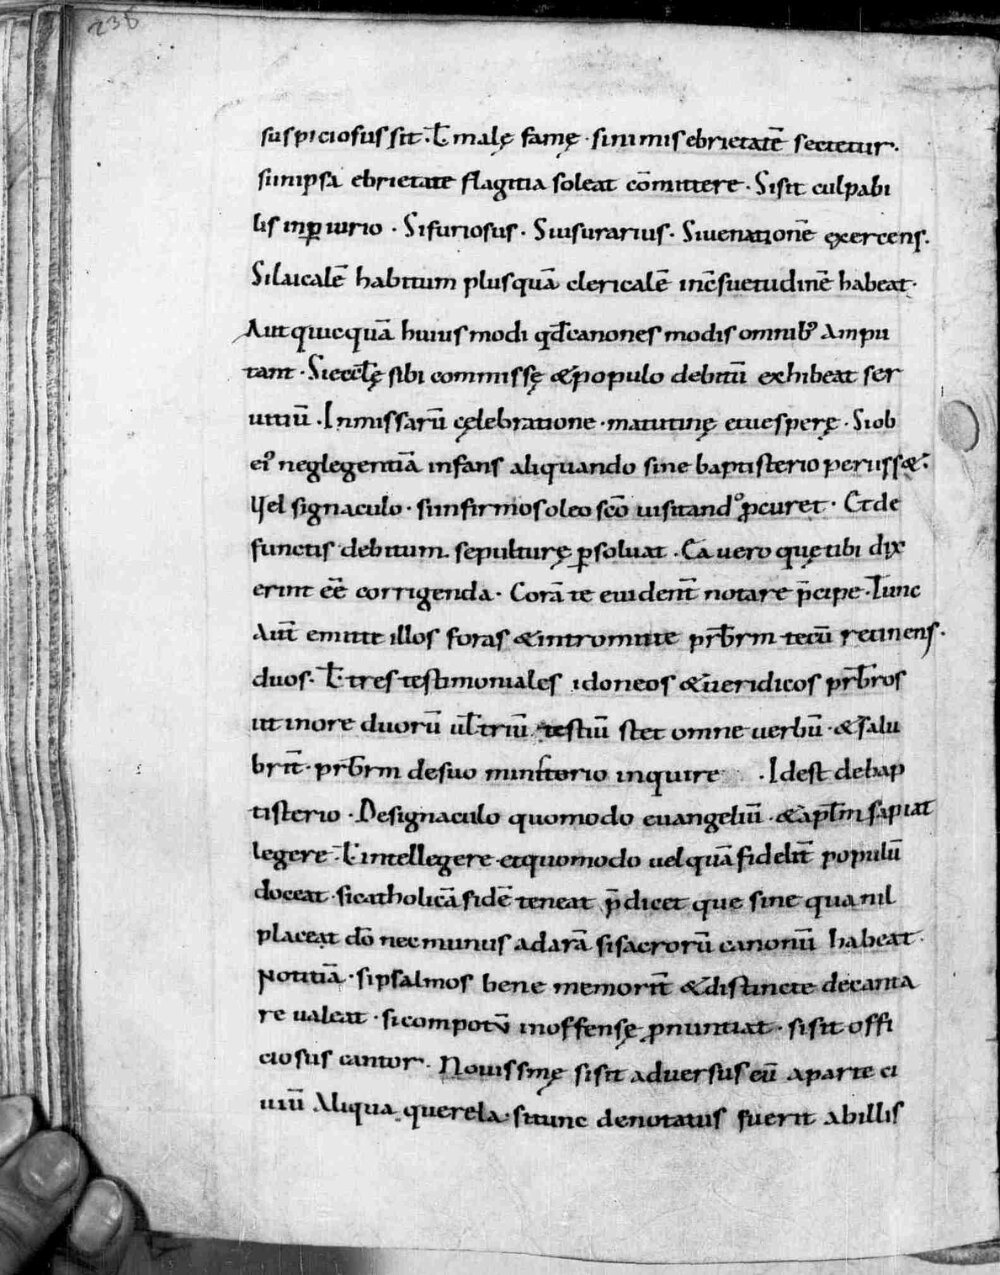 236
suspiciosus sit · ł malę famę · sinimis ebrietatē sectetur ·
si in ipsa ebrietate flagitia soleat cōmittere · Si sit culpabi
lis in ꝑiurio · Si furiosus · Si usurarius · Si uenationē exercens ·
Si laicalē habitum plus quā clericalē in c̄suetudinē habeat ·
Aut quicquā huius modi qđ canones modis omnibꝰ ampu
tant · Si eccłę sibi commissę & populo debitū exhibeat ser
uitiū · In missarū cęlebratione · matutinę et uesperę · Si ob
eiꝰ neglegentiā infans aliquando sine baptisterio periss& ·
Vel signaculo · si infirmos oleo sc̄o uisitando ꝓcuret · Et de
functis debitum sepulturę ꝑsoluat · Ea uero quę tibi dix
erint eē̄ corrigenda · Corā te euident̄ notare p̄cipe · Tunc
Aut̄ emitte illos foras & intromitte pr̄b̄rm tecū retinens ·
duos · ł tres testimoniales idoneos & ueridicos pr̄b̄ros
ut in ore duorū uł triū testiū stet omne uerbū · & salu
brit̄ · pr̄b̄rm de suo ministerio inquire · Id est de bap
tisterio · De signaculo quomodo euangeliū · & apłm sapiat
legere · ł intellegere · et quomodo uel quā fidelit̄ populū
doceat · si catholicā fidē teneat p̄dicet que sine qua nil
placeat dō nec munus ad arā si sacrorū canonū habeat ·
Notitiā · si psalmos bene memorit̄ & distincte decanta
re ualeat · si compotū inoffensę ꝓnuntiat · si sit offi
ciosus cantor · Nouissimę si sit aduersus eū a parte ci
uiū Aliqua querela · si tunc denotatus fuerit ab illis